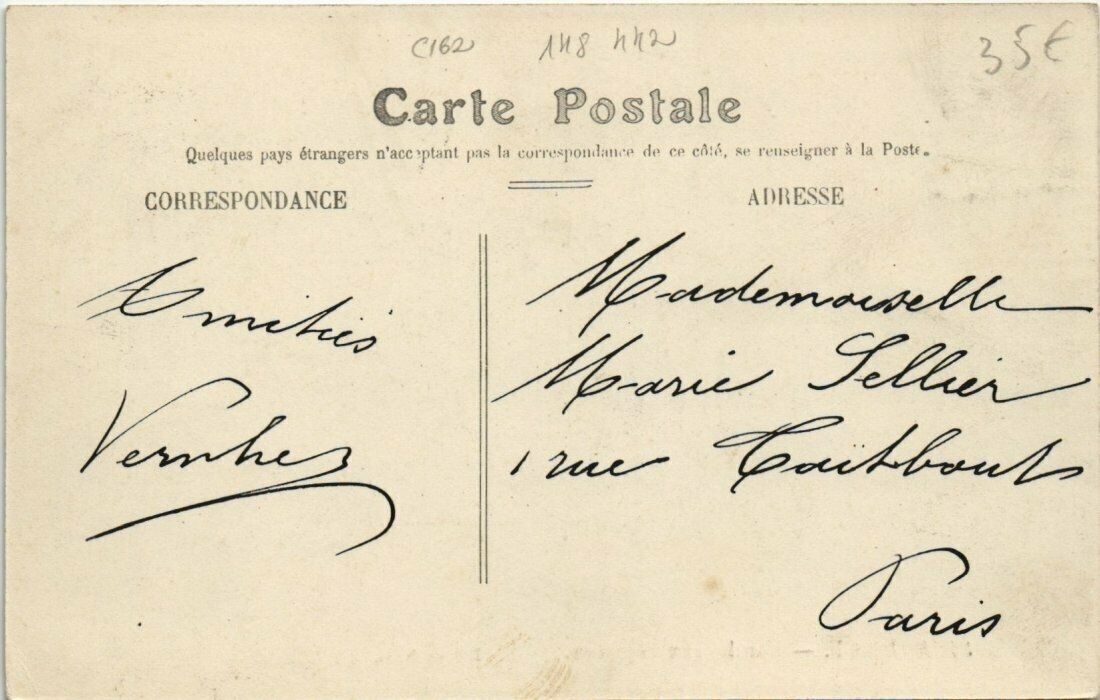 C162 148 442 35€
Carte Postale
Quelques pays étrangers n'acceptant pas la correspondance de ce côté, se renseigner à la Poste.
CORRESPONDANCE
Amitiés
Vernhez
ADRESSE
Mademoiselle
Marie Sellier
1 rue Taïtbout
Paris